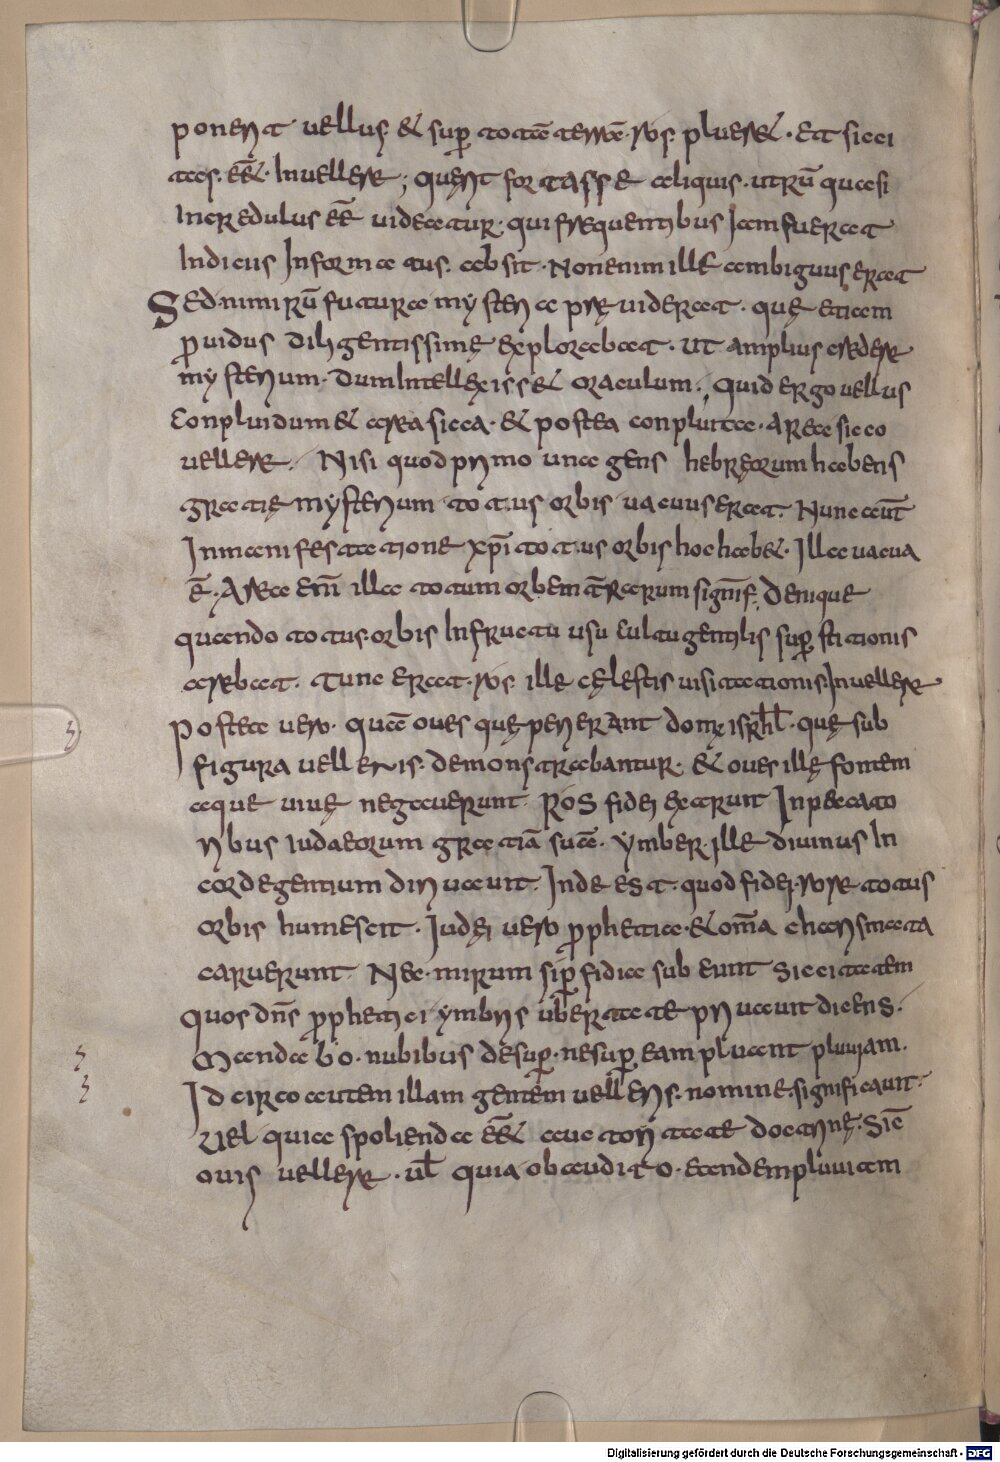 poneret uellus. & sup̄ totā terrā. ros. pluere&. et sicci
tas. ēē&. In uellere; querit fortasse aliquis. utrū quasi
Incredulus ēē uideatur. qui frequentibus Iam fuerat
Indicus Informatus. absit. Non enim ille ambiguus erat
Sed nimirū futura mysteria pręuiderat. quę etiam
p̄uidus diligentissimę explorabat. ut amplius crederę
mysterium. dum Intellexiss& oraculum; quid ergo uellus
conpluidum & area sicca. & postea conpluita. area sicco
uellere. Nisi quod primo una gens hebręorum habens
gratię mysterium totus orbis uacuus erat. Nunc aut̄
In manifestatione xp̄i totus orbis hoc hab&. Illa uacua
ē. Area eni̅ illa totum orbem t̄rarum signif̄. Denique
quando totus orbis In fructu usu cultu gentilis sup̄stitionis
arebat. tunc erat. ros. ille cęlestis uisitationis. In uellere
postea uero. quā oues quę perierant domꝰ isrl̄. que sub
figura uelleris. demonstrabantur. & oues illę fontem
aque uiuę negauerunt. Ros fidei exaruit In pecato
ribus iudaeorum gratiā suā. ymber. ille diuinus In
cor de gentium diriuauit. Inde est. quod fidei. rore totus
orbis humescit. Iudei uero p̄phetica. & om̄a charismata
caruerunt Nec. mirum si p̄fidiae subeunt siccitatem
quos dn̄s p̄phetici ymbris uberatate priuauit dicens.
Mandabo. nubibus desup̄. ne sup̄ eam pluant pluuiam.
Idcirco autem illam gentem uelleris. nomine. significauit.
Uel quia spolianda ēē& auctoritate doctrinę. sic̄
ouis uellere. ul̄ quia abcudito. eandem pluuiam